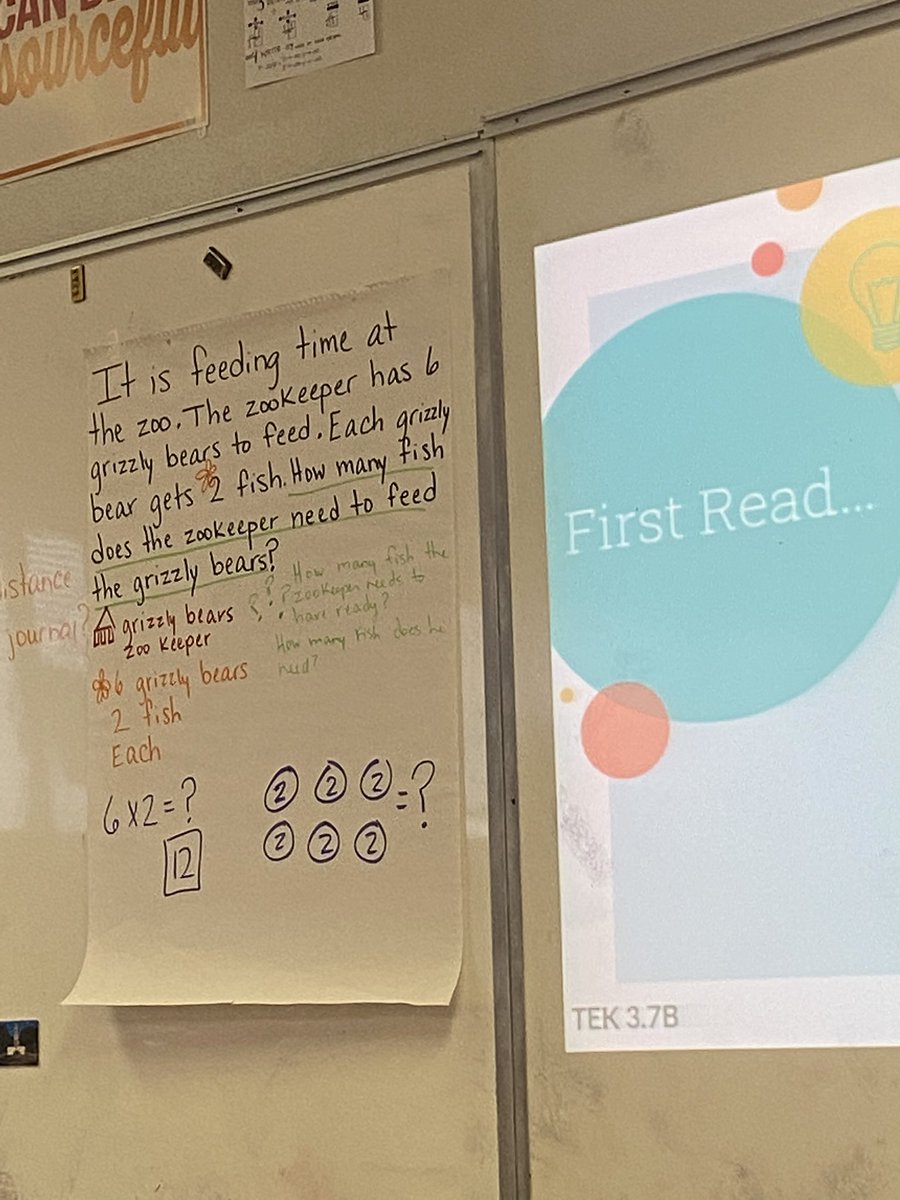 CAN
sourceful
It is feeding time at
the zoo. The zookeeper has 6
grizzly bears to feed. Each grizzly
bear gets 2 fish. How many fish
does the zookeeper need to feed
the grizzly bears?
istance
journal?
grizzly bears
zoo keeper
6 grizzly bears
2 fish
Each
? ? ? How many fish the
zookeeper needs to
have ready?
How many fish does he
need?
6x2=?
12
2 2 2 =?
2 2 2
First Read...
TEK 3.7B